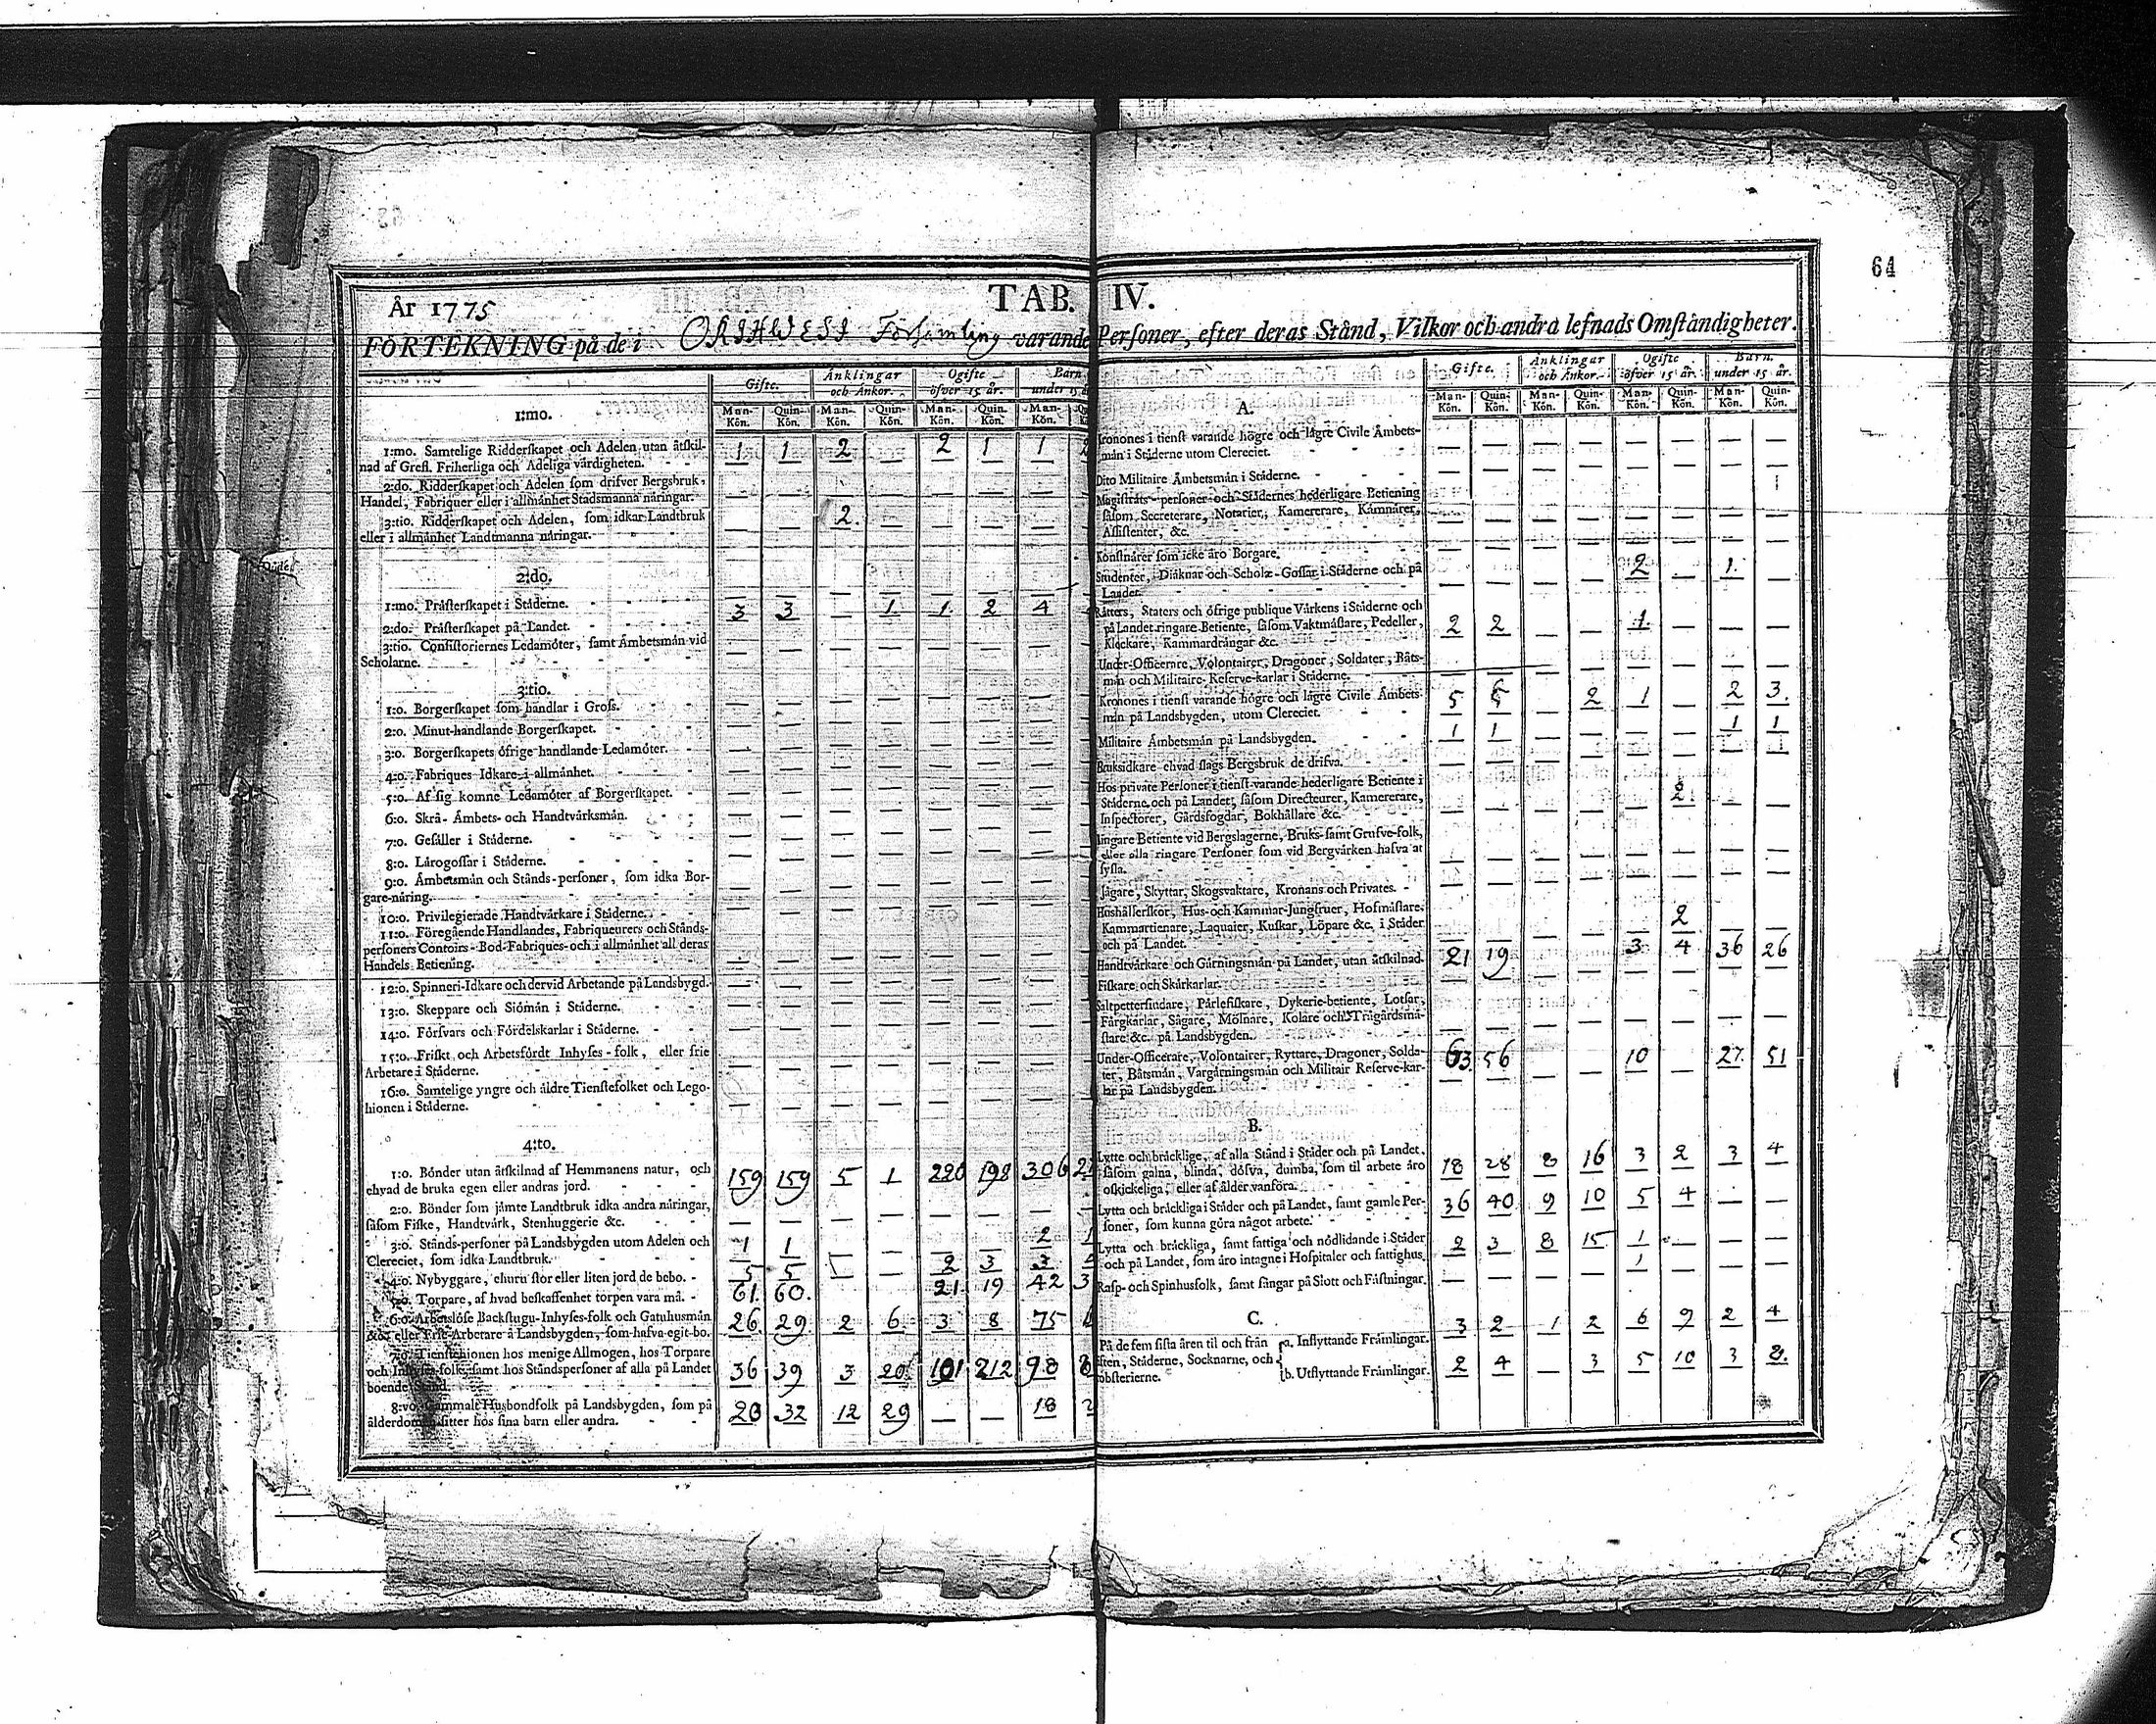 64
År 1775
TAB. IV.
FÖRTEKNING på de i ORIHVESI Församling varande Personer, efter deras Stånd, Vilkor och andra lefnads Omständigheter.
Gifte. Änklingar och Änkor. Ogifte öfver 15 år. Barn under 15 år
Man-Kön. Quin-Kön. Man-Kön. Quin-Kön. Man-Kön. Quin-Kön. Man-Kön.
1:mo.
1:mo. Samtelige Ridderskapet och Adelen utan åtskil-
nad af Grefl. Friherliga och Adeliga värdigheten. 1 1 2 — 2 1 1 2
2:do. Ridderskapet och Adelen som drifver Bergsbruk,
Handel, Fabriquer eller i allmänhet Stadsmanna näringar. — — — — — — —
3:tio. Ridderskapet och Adelen, som idkar Landtbruk
eller i allmänhet Landtmanna näringar. — — 2. — — — —
2:do.
1:mo. Prästerskapet i Städerne. — — — — — — —
2:do. Prästerskapet på Landet. 3 3 — 1 1 2 4
3:tio. Consistoriernes Ledamöter, samt Ämbetsmän vid
Scholarne. — — — — — — —
3:tio.
1:o. Borgerskapet som handlar i Gross. — — — — — — —
2:o. Minut-handlande Borgerskapet. — — — — — — —
3:o. Borgerskapets öfrige handlande Ledamöter. — — — — — — —
4:o. Fabriques Idkare i allmänhet. — — — — — — —
5:o. Af sig komne Ledamöter af Borgerskapet. — — — — — — —
6:o. Skrå- Ämbets- och Handtvärksmän. — — — — — — —
7:o. Gesäller i Städerne. — — — — — — —
8:o. Lärogossar i Städerne. — — — — — — —
9:o. Ämbetsmän och Stånds-personer, som idka Bor-
gare-näring. — — — — — — —
10:o. Privilegierade Handtvärkare i Städerne. — — — — — — —
11:o. Föregående Handlandes, Fabriqueurers och Stånds-
personers Contoirs- Bod- Fabriques- och i allmänhet all deras
Handels Betiening. — — — — — — —
12:o. Spinneri-Idkare och dervid Arbetande på Landsbygd. — — — — — — —
13:o. Skeppare och Siömän i Städerne. — — — — — — —
14:o. Försvars och Fördelskarlar i Städerne. — — — — — — —
15:o. Friskt och Arbetsfördt Inhyses-folk, eller frie
Arbetare i Städerne. — — — — — — —
16:o. Samtelige yngre och äldre Tienstefolket och Lego-
hionen i Städerne. — — — — — — —
4:to.
1:o. Bönder utan åtskilnad af Hemmanens natur, och
ehvad de bruka egen eller andras jord. 159 159 5 1 220 198 306
2:o. Bönder som jämte Landtbruk idka andra näringar,
såsom Fiske, Handtvärk, Stenhuggerie &c. — — — — — — —
3:o. Stånds-personer på Landsbygden utom Adelen och
Clereciet, som idka Landtbruk. 1 1 — — — — 2 1
4:o. Nybyggare, ehuru stor eller liten jord de bebo. 5 5 — — 2 3 3
5:o. Torpare, af hvad beskaffenhet torpen vara må. 61. 60. 21. 19 42
6:o. Arbetslöse Backstugu-Inhyses-folk och Gatuhusmän
&c. eller Frie Arbetare å Landsbygden, som hafva egit bo. 26 29 2 6 3 8 75
7:o. Tienstehionen hos menige Allmogen, hos Torpare
och Inhyses-folk, samt hos Ståndspersoner af alla på Landet
boende Stånd. 36 39 3 20 101 212 98
8:vo. Gammalt Husbondfolk på Landsbygden, som på
ålderdomen sitter hos sina barn eller andra. 20 32 12 29 — — 18
Gifte. Änklingar och Änkor. Ogifte öfver 15 år. Barn. under 15 år.
Man-Kön. Quin-Kön. Man-Kön. Quin-Kön. Man-Kön. Quin-Kön. Man-Kön. Quin-Kön.
A.
Kronones i tienst varande högre och lägre Civile Ämbets-
män i Städerne utom Clereciet. — — — — — — — —
Dito Militaire Ämbetsmän i Städerne. — — — — — — —
Magistrats-personer och Städernes hederligare Betiening
såsom Secreterare, Notarier, Kamererare, Kämnärer,
Assistenter, &c. — — — — — — — —
Konstnärer som icke äro Borgare. — — — — — — — —
Studenter, Diäknar och Scholæ-Gossar i Städerne och på
Landet. — — — — 2 — 1. —
Rätters, Staters och öfrige publique Värkens i Städerne och
på Landet ringare Betiente, såsom Vaktmästare, Pedeller,
Klockare, Kammardrängar &c. 2 2 — — 1 — — —
Under-Officerare, Volontairer, Dragoner, Soldater, Båts-
män och Militaire-Reserve-karlar i Städerne. — — — — — — — —
Kronones i tienst varande högre och lägre Civile Ämbets-
män på Landsbygden, utom Clereciet. 5 5 — 2 1 — 2 3.
Militaire Ämbetsmän på Landsbygden. 1 1 — — — — 1 1
Bruksidkare ehvad slags Bergsbruk de drifva. — — — — — — — —
Hos private Personer i tienst varande hederligare Betiente i
Städerne och på Landet, såsom Directeurer, Kamererare,
Inspectorer, Gårdsfogdar, Bokhållare &c. — — — — — 2. — —
ringare Betiente vid Bergslagerne, Bruks- samt Grufve-folk,
eller alla ringare Personer som vid Bergvärken hafva at
sysla. — — — — — — — —
Jägare, Skyttar, Skogsvaktare, Kronans och Privates. — — — — — — — —
Hushållerskor, Hus- och Kammar-Jungfruer, Hofmästare,
Kammartienare, Laquaier, Kuskar, Löpare &c. i Städer
och på Landet. — — — — — 2 — —
Handtvärkare och Gärningsmän på Landet, utan åtskilnad. 21 19 — — 3 4 36 26
Fiskare och Skärkarlar. — — — — — — — —
Saltpettersiudare, Pärlefiskare, Dykerie-betiente, Lotsar,
Färgkarlar, Sågare, Mölnare, Kolare och Trägårdsmä-
stare &c. på Landsbygden. — — — — — — — —
Under-Officerare, Volontairer, Ryttare, Dragoner, Solda-
ter, Båtsmän, Vargärningsmän och Militair Reserve-kar-
lar på Landsbygden. 63. 56 10 27. 51
B.
Lytte och bräcklige, af alla Stånd i Städer och på Landet,
såsom galna, blinda, döfva, dumba, som til arbete äro
oskickeliga, eller af ålder vanföra. 18 28 8 16 3 2 3 4
Lytta och bräckliga i Städer och på Landet, samt gamle Per-
soner, som kunna göra något arbete. 36 40 9 10 5 4 — —
Lytta och bräckliga, samt fattiga och nödlidande i Städer
och på Landet, som äro intagne i Hospitaler och fattighus. 2 3 8 15 1 — — —
Rasp- och Spinhusfolk, samt fångar på Slott och Fästningar. — — — — 1 — — —
C.
På de fem sista åren til och från
Städerne, Socknarne, och
a. Inflyttande Främlingar. 3 2 1 2 6 9 2 4
b. Utflyttande Främlingar. 2 4 — 3 5 10 3 2.